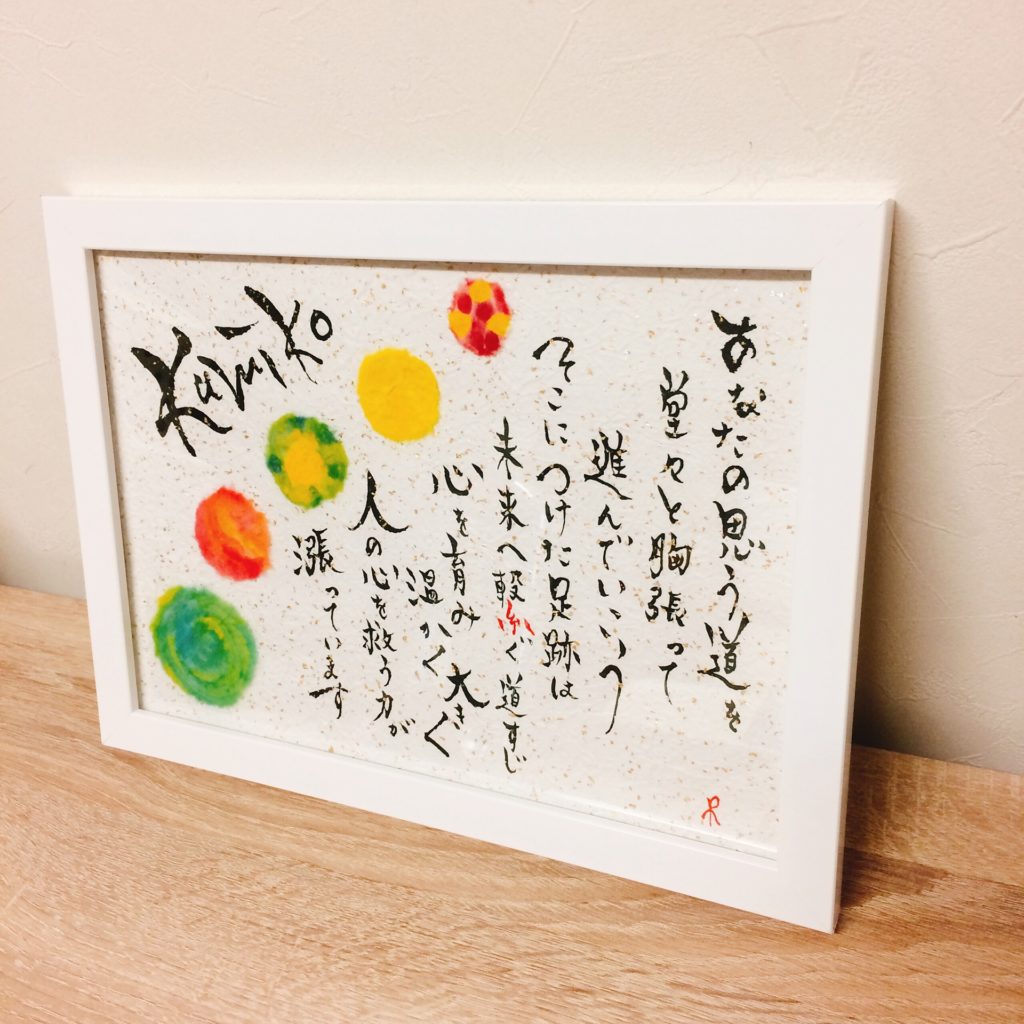 あなたの思う道を
堂々と胸張って
進んでいこう
そこにつけた足跡は
未来へ繋ぐ道すじ
心を育み大きく
温かく
人の心を救う力が
漲っています
Kumiko